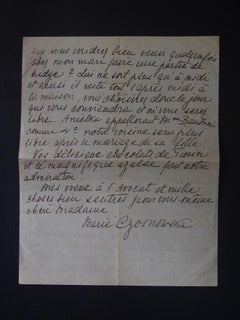 que vous voudrez bien venir quelquefois
chez mon mari faire une partie de
bridge? qui ne sort plus qu'à midi
et demi il reste tout l'après midi à
la maison, vous choisirez donc le jour
qui vous conviendra et où vous serez
libre. appellerait Mme
comme 4e notre voisine sera plus
libre après le mariage de sa fille
Vos délicieux chocolats de Turin
et le magnifique azalée font notre
admiration.
Mes vœux à l'Avocat et mille
choses bien senties pour vous-même
chère Madame
Marie Czosnowska